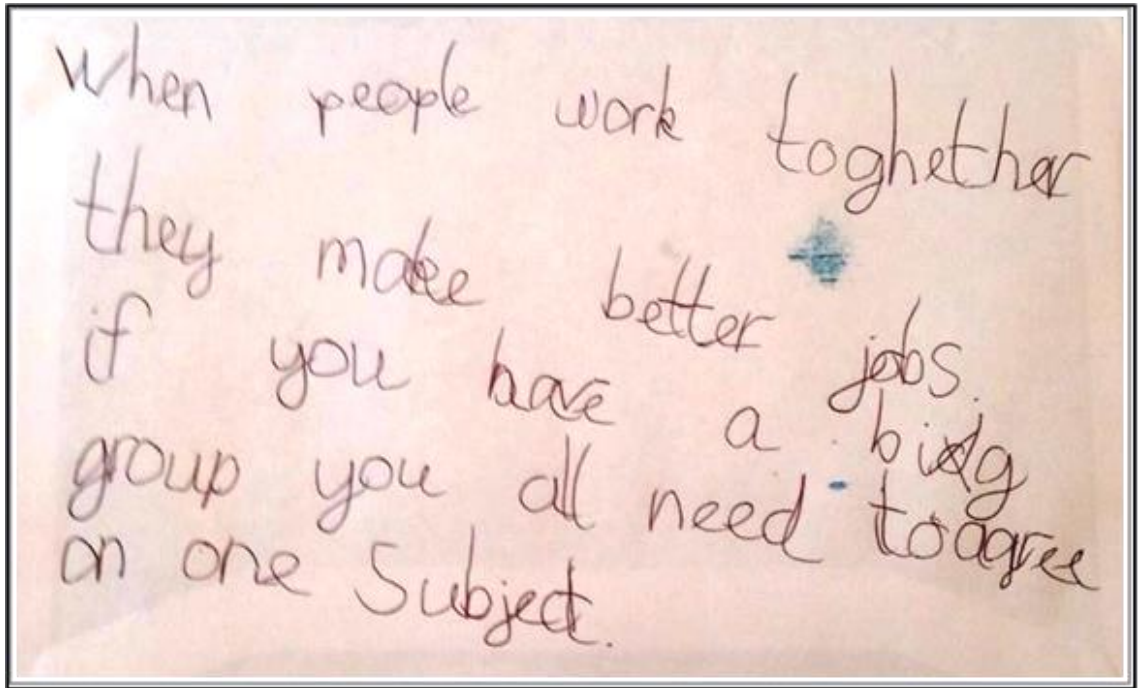 When people work toghether
they make better jobs.
if you have a big
group you all need to agree
on one Subject.